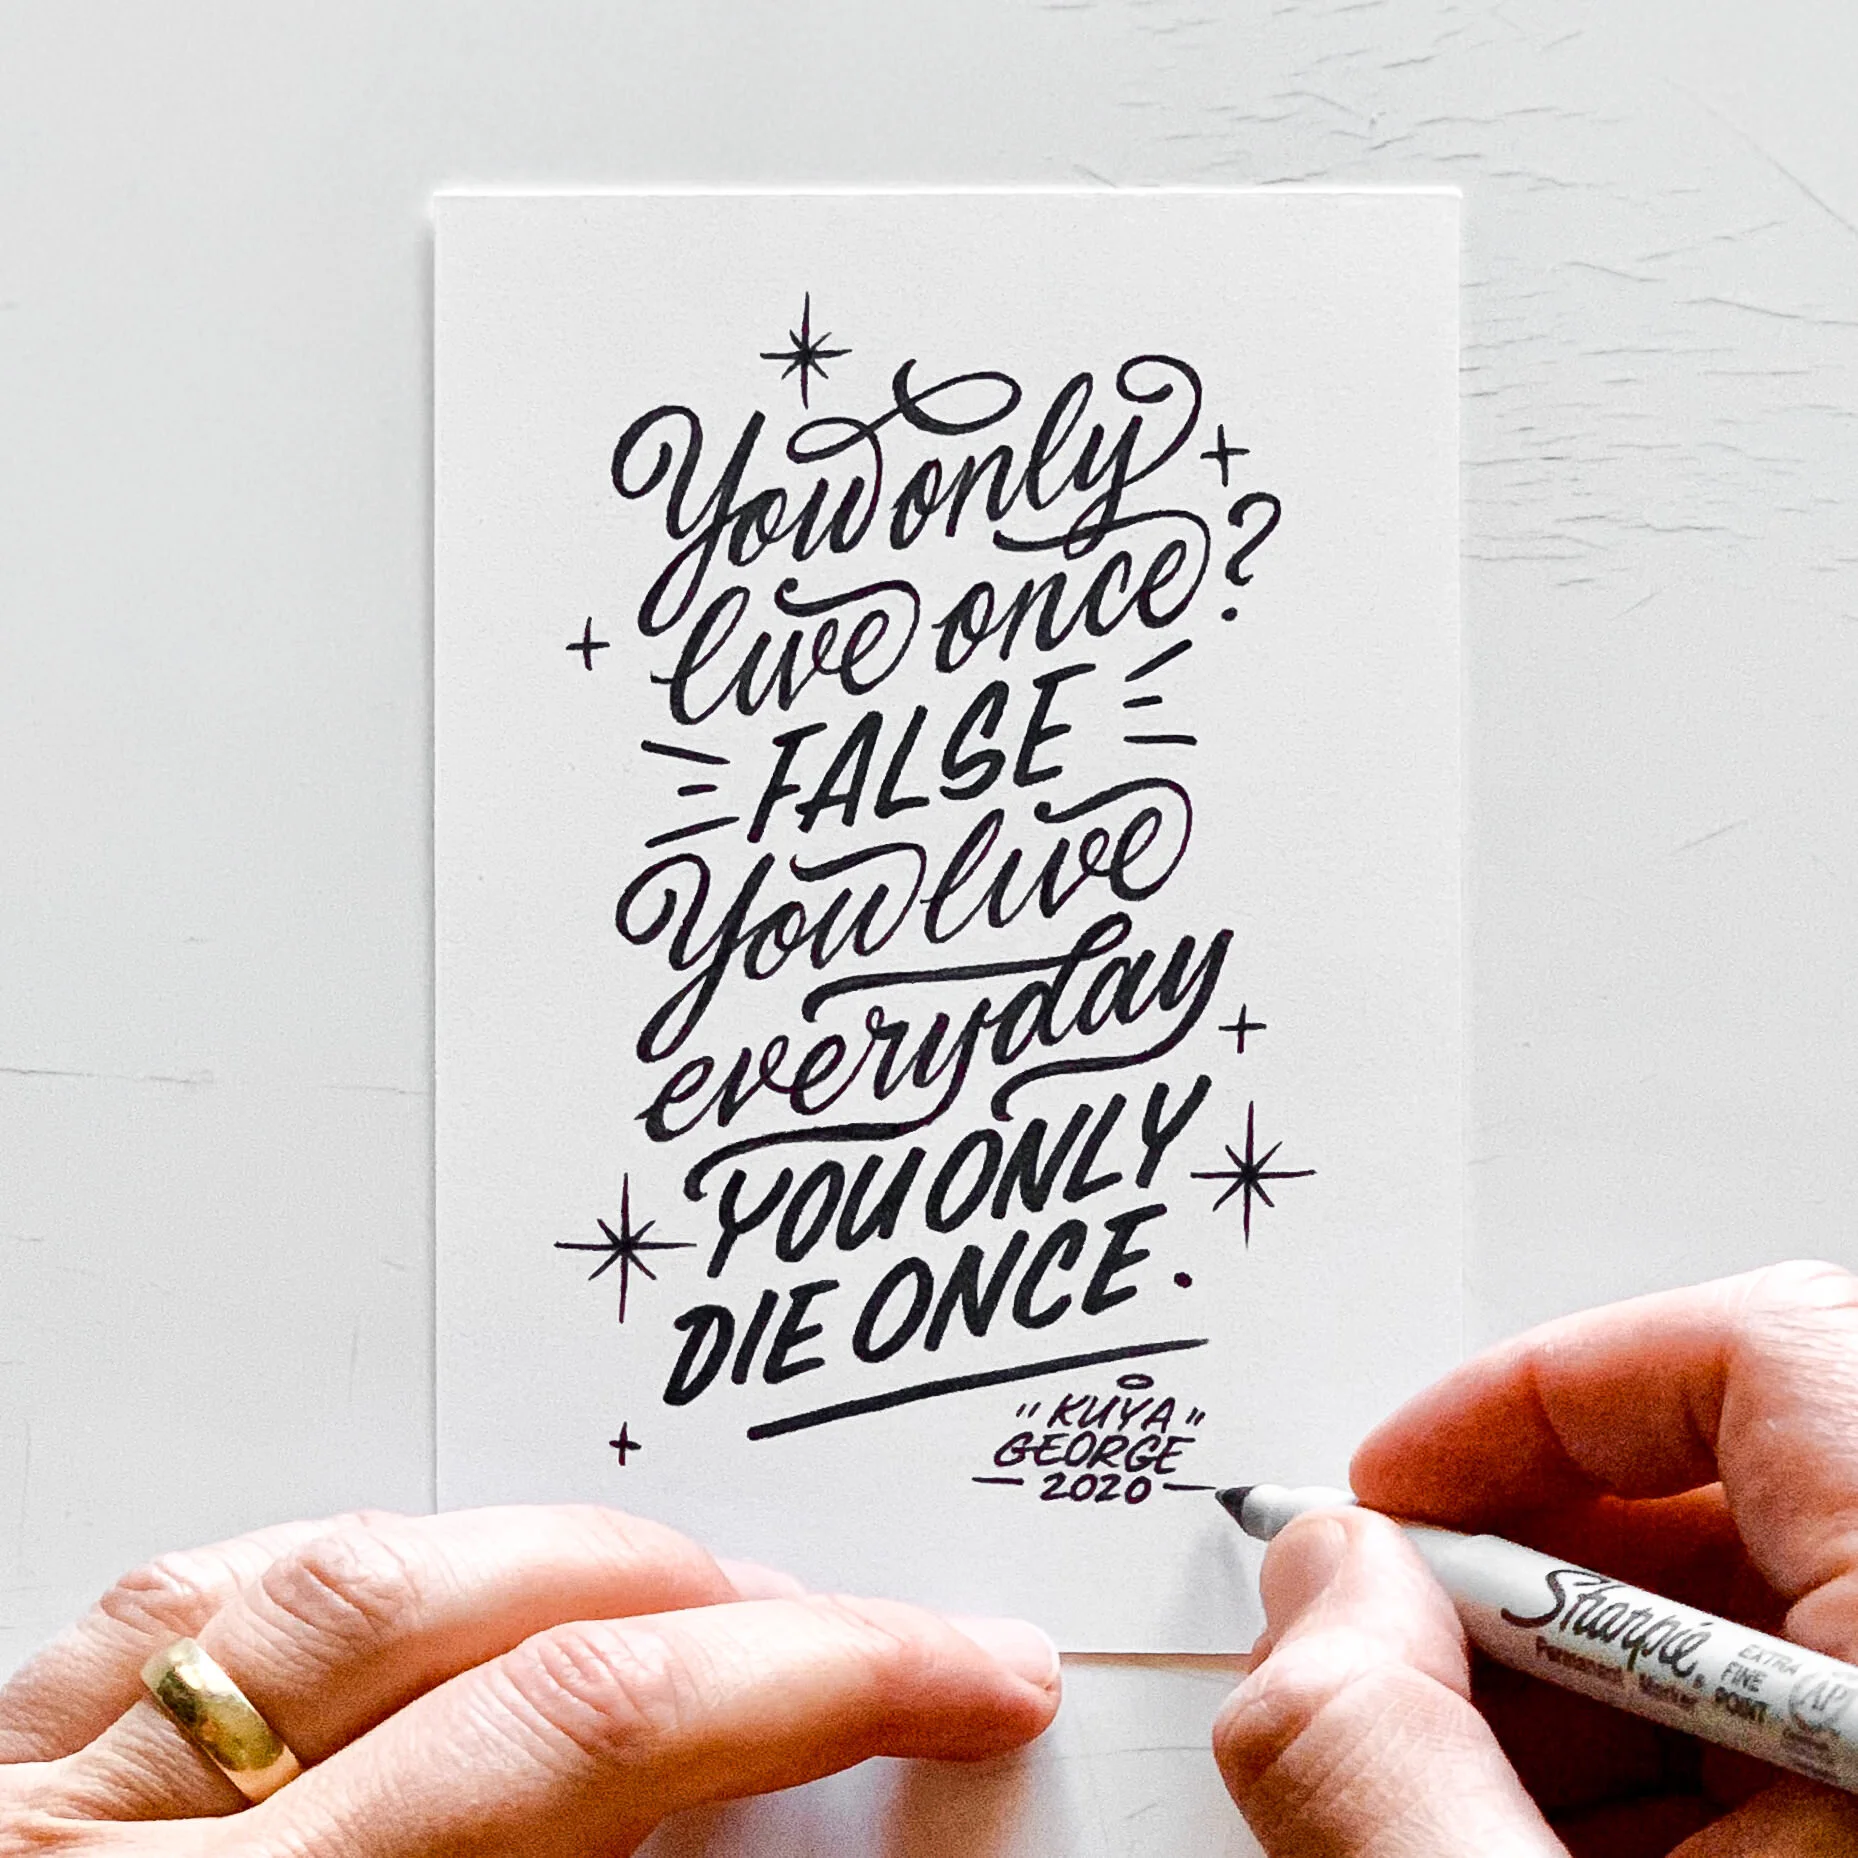 You only
live once?
FALSE
You live
everyday
YOU ONLY
DIE ONCE.
"KUYA"
GEORGE
— 2020 —
Sharpie
Permanent Marker
EXTRA
FINE
POINT
AP